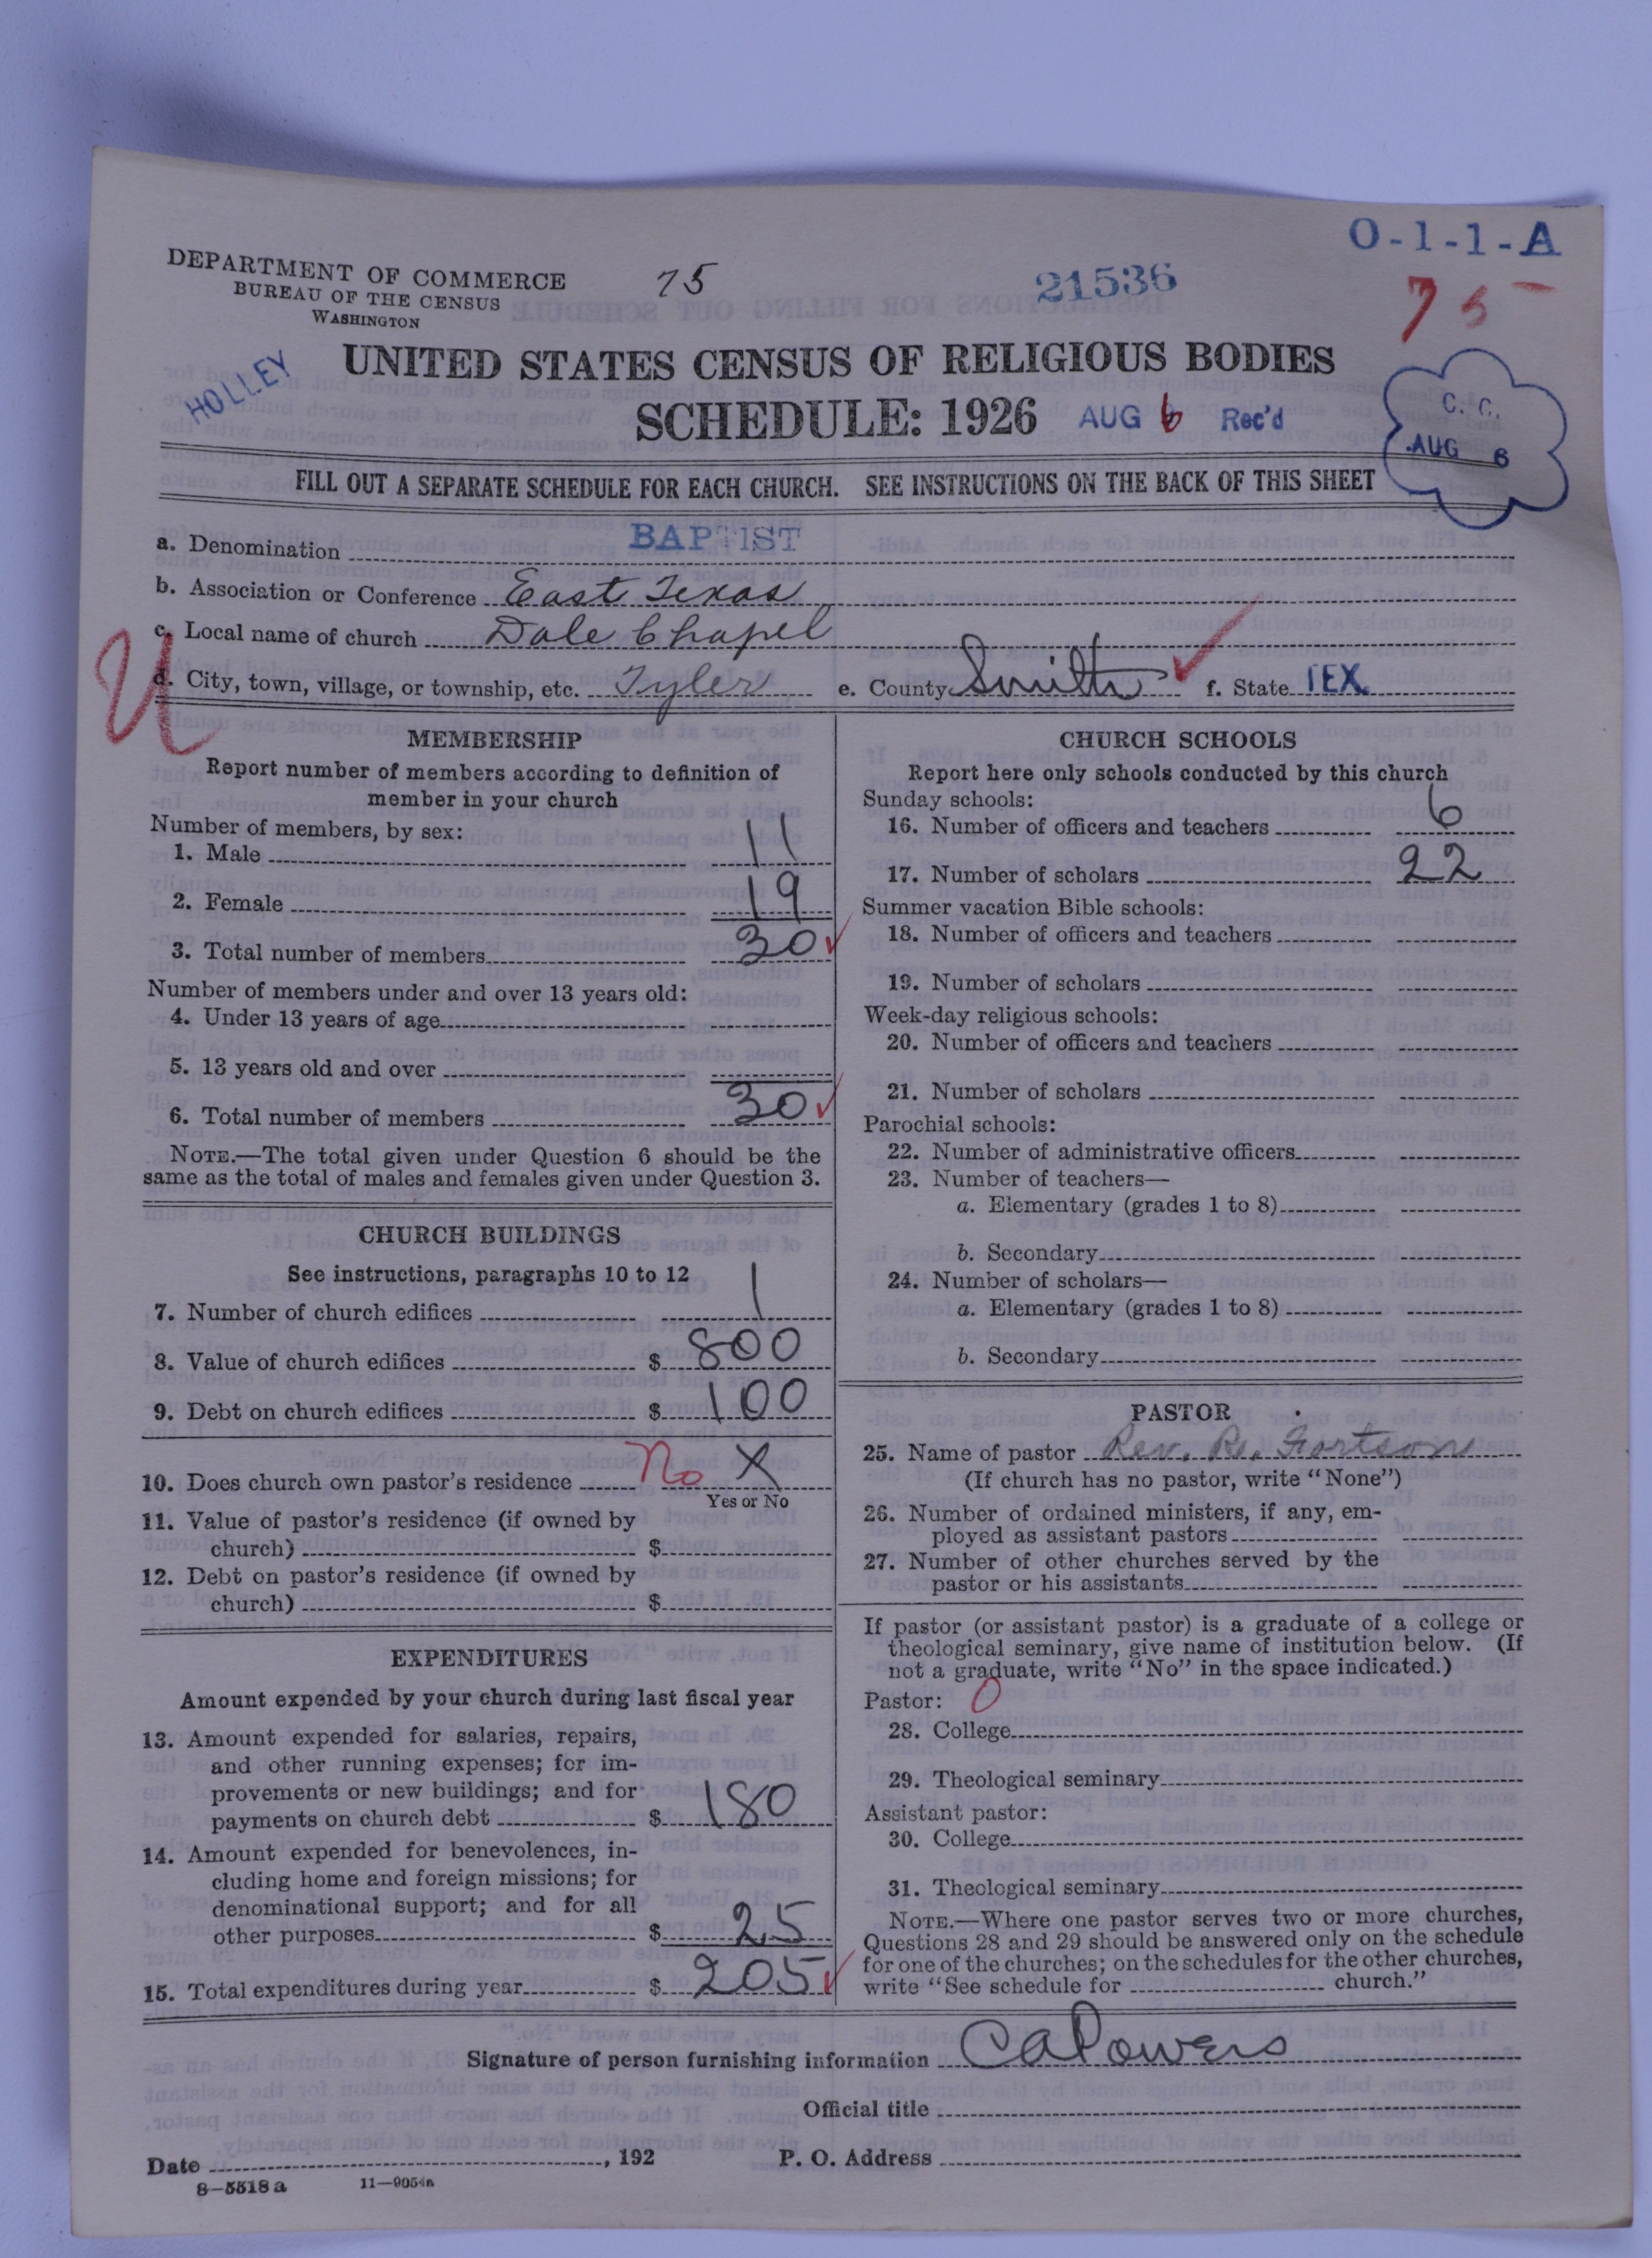 O-1-1-A
DEPARTMENT OF COMMERCE
BUREAU OF THE CENSUS
WASHINGTON
75
21536
75-
HOLLEY
UNITED STATES CENSUS OF RELIGIOUS BODIES
SCHEDULE: 1926 AUG 6 Rec'd
C. C.
AUG 6
FILL OUT A SEPARATE SCHEDULE FOR EACH CHURCH. SEE INSTRUCTIONS ON THE BACK OF THIS SHEET
a. Denomination BAPTIST
b. Association or Conference East Texas
c. Local name of church Dale Chapel
d. City, town, village, or township, etc. Tyler e. County Smith f. State TEX.
U
MEMBERSHIP
Report number of members according to definition of
member in your church
Number of members, by sex:
1. Male 11
2. Female 19
3. Total number of members 30
Number of members under and over 13 years old:
4. Under 13 years of age
5. 13 years old and over
6. Total number of members 30
NOTE.—The total given under Question 6 should be the
same as the total of males and females given under Question 3.
CHURCH BUILDINGS
See instructions, paragraphs 10 to 12
7. Number of church edifices 1
8. Value of church edifices $ 800
9. Debt on church edifices $ 100
10. Does church own pastor's residence No X
Yes or No
11. Value of pastor's residence (if owned by
church) $
12. Debt on pastor's residence (if owned by
church) $
EXPENDITURES
Amount expended by your church during last fiscal year
13. Amount expended for salaries, repairs,
and other running expenses; for im-
provements or new buildings; and for
payments on church debt $ 180
14. Amount expended for benevolences, in-
cluding home and foreign missions; for
denominational support; and for all
other purposes $ 25
15. Total expenditures during year $ 205
CHURCH SCHOOLS
Report here only schools conducted by this church
Sunday schools:
16. Number of officers and teachers 6
17. Number of scholars 22
Summer vacation Bible schools:
18. Number of officers and teachers
19. Number of scholars
Week-day religious schools:
20. Number of officers and teachers
21. Number of scholars
Parochial schools:
22. Number of administrative officers
23. Number of teachers—
a. Elementary (grades 1 to 8)
b. Secondary
24. Number of scholars—
a. Elementary (grades 1 to 8)
b. Secondary
PASTOR
25. Name of pastor Rev. R. Fortson
(If church has no pastor, write "None")
26. Number of ordained ministers, if any, em-
ployed as assistant pastors
27. Number of other churches served by the
pastor or his assistants
If pastor (or assistant pastor) is a graduate of a college or
theological seminary, give name of institution below. (If
not a graduate, write "No" in the space indicated.)
Pastor: 0
28. College
29. Theological seminary
Assistant pastor:
30. College
31. Theological seminary
NOTE.—Where one pastor serves two or more churches,
Questions 28 and 29 should be answered only on the schedule
for one of the churches; on the schedules for the other churches,
write "See schedule for church."
Signature of person furnishing information CA Powers
Official title
Date , 192 P. O. Address
8—5518 a 11—9054a